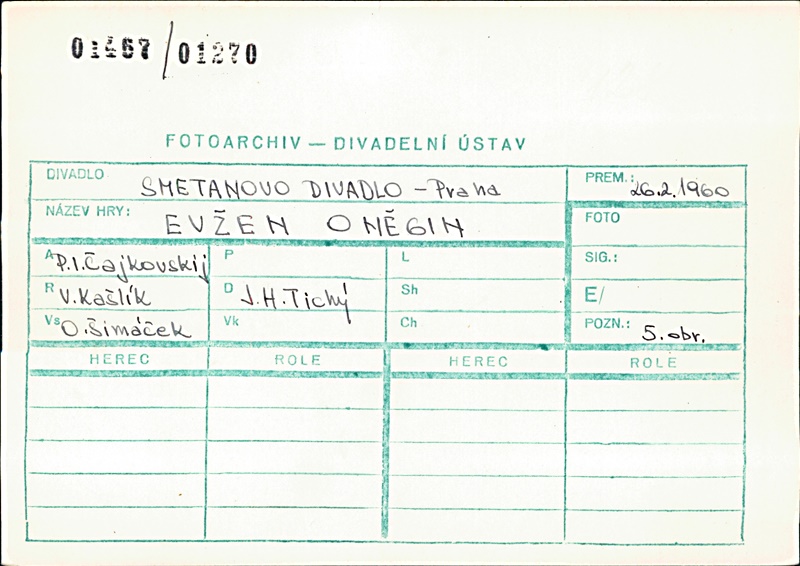 01467/01270
FOTOARCHIV — DIVADELNÍ ÚSTAV
DIVADLO SMETANOVO DIVADLO - Praha PREM.: 26.2.1960
NÁZEV HRY: EVŽEN ONĚGIN FOTO
A P.I.Čajkovskij P L SIG.:
R V.Kašlík D J.H.Tichý Sh E/
Vs O.Šimáček Vk Ch POZN.: 5.obr.
HEREC ROLE HEREC ROLE